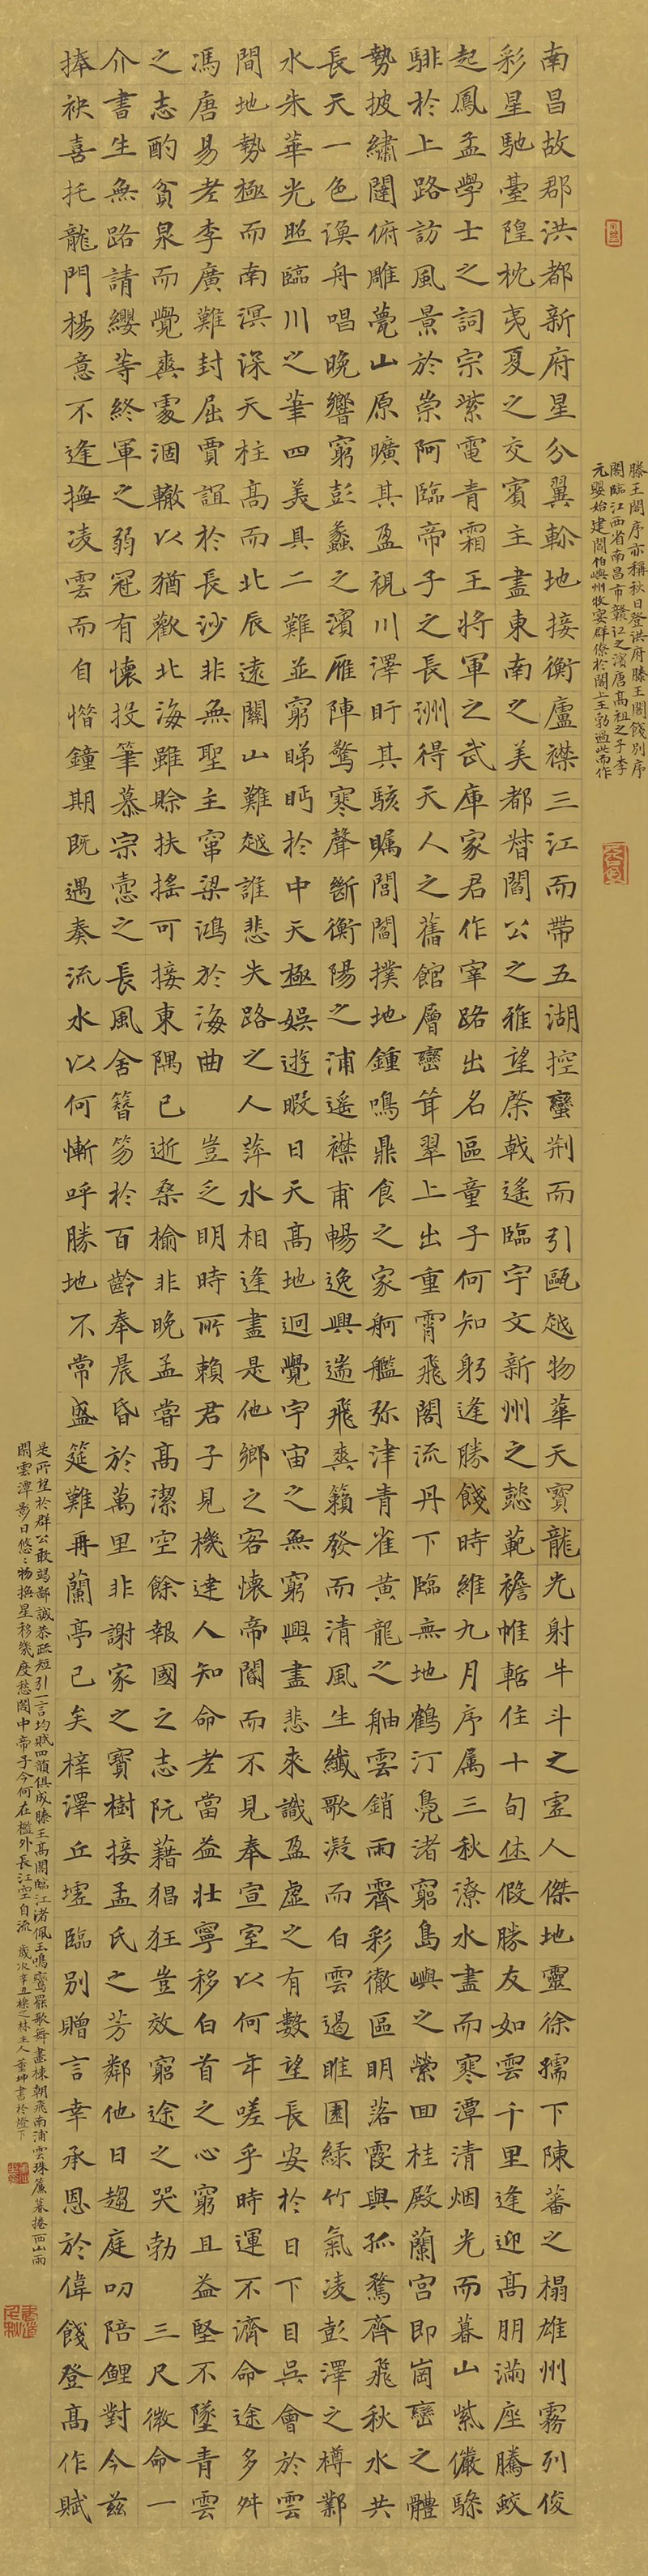 滕王閣序亦稱秋日登洪府滕王閣餞別序
閣臨江西省南昌市贛江之濱唐高祖之子李
元嬰始建閻伯嶼州牧宴群僚於閣上王勃過此而作
南昌故郡洪都新府星分翼軫地接衡廬襟三江而帶五湖控蠻荆而引甌越物華天寶龍光射牛斗之墟人傑地靈徐孺下陳蕃之榻雄州霧列俊
彩星馳臺隍枕夷夏之交賓主盡東南之美都督閻公之雅望棨戟遙臨宇文新州之懿範襜帷暫住十旬休假勝友如雲千里逢迎高朋滿座騰蛟
起鳳孟學士之詞宗紫電青霜王將軍之武庫家君作宰路出名區童子何知躬逢勝餞時維九月序属三秋潦水盡而寒潭清烟光而暮山紫儼驂
騑於上路訪風景於崇阿臨帝子之長洲得天人之舊館層巒耸翠上出重霄飛閣流丹下臨無地鶴汀鳧渚窮島嶼之縈回桂殿蘭宮即崗巒之體
勢披繡闥俯雕甍山原曠其盈視川澤盱其駭矚閭閻撲地鍾鳴鼎食之家舸艦弥津青雀黃龍之舳雲銷雨霽彩徹區明落霞與孤鶩齊飛秋水共
長天一色漁舟唱晚響窮彭蠡之濱雁陣驚寒聲斷衡陽之浦遙襟甫暢逸興遄飛爽籟發而清風生纖歌凝而白雲遏睢園綠竹氣凌彭澤之樽鄴
水朱華光照臨川之筆四美具二難並窮睇眄於中天極娛遊暇日天高地迥覺宇宙之無窮興盡悲來識盈虛之有數望長安於日下目吳會於雲
間地勢極而南溟深天柱高而北辰遠關山難越誰悲失路之人萍水相逢盡是他鄉之客懷帝閽而不見奉宣室以何年嗟乎時運不濟命途多舛
馮唐易老李廣難封屈賈誼於長沙非無聖主竄梁鴻於海曲 豈乏明時所賴君子見機達人知命老當益壯寧移白首之心窮且益堅不墜青雲
之志酌貪泉而覺爽處涸轍以猶歡北海雖賒扶搖可接東隅已逝桑榆非晚孟嘗高潔空餘報國之志阮藉猖狂豈效窮途之哭勃 三尺微命一
介書生無路請纓等終軍之弱冠有懷投筆慕宗愨之長風舍簪笏於百齡奉晨昏於萬里非謝家之寶樹接孟氏之芳鄰他日趨庭叨陪鯉對今茲
捧袂喜托龍門楊意不逢撫凌雲而自惜鐘期既遇奏流水以何慚呼勝地不常盛筵難再蘭亭已矣梓澤丘墟臨別贈言幸承恩於偉餞登高作賦
是所望於群公敢竭鄙誠恭疏短引一言均賦四韻俱成滕王高閣臨江渚佩玉鳴鸞罷歌舞畫棟朝飛南浦雲珠簾暮捲西山雨
閑雲潭影日悠々物換星移幾度愁閣中帝子今何在檻外長江空自流 歲次辛丑檪之林主人董坤書於燈下